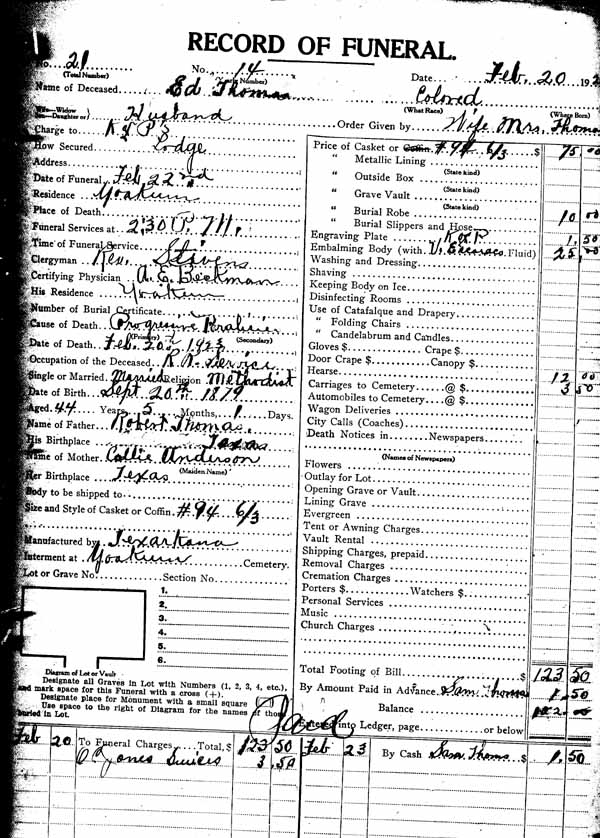 RECORD OF FUNERAL.
No. 21
(Total Number)
No. 14
Date Feb. 20 192
Name of Deceased Ed Thomas
Colored
(What Race)
(Where Born)
Widow
Daughter or) Husband
Order Given by Wife Mrs. Thomas
Charge to K of P
How Secured Lodge
Address
Date of Funeral Feb 22nd
Residence Yoakum
Place of Death
Funeral Services at 2:30 P. M.
Time of Funeral Service
Clergyman Rev. Stevens
Certifying Physician A. E. Beckman
His Residence Yoakum
Number of Burial Certificate
Cause of Death Progressive
(Primary) (Secondary)
Date of Death Feb. 20th 1923
Occupation of the Deceased R. R. Service
Single or Married Married Religion Methodist
Date of Birth Sept. 20th 1879
Aged 44 Years 5 Months, 1 Days.
Name of Father Robert Thomas
His Birthplace Texas
Name of Mother Callie Anderson
(Maiden Name)
Her Birthplace Texas
Body to be shipped to
Size and Style of Casket or Coffin #94 6/3
Manufactured by Texarkana
Interment at Yoakum Cemetery.
Lot or Grave No. Section No.
1.
2.
3.
4.
5.
6.
Diagram of Lot or Vault
Designate all Graves in Lot with Numbers (1, 2, 3, 4, etc.),
and mark space for this Funeral with a cross (+).
Designate place for Monument with a small square
Use space to the right of Diagram for the names of those
buried in Lot.
Price of Casket or Coffin #94 6/3 $ 75.00
(State kind)
" Metallic Lining
" Outside Box
(State kind)
" Grave Vault
(State kind)
" Burial Robe 10 00
" Burial Slippers and Hose
Engraving Plate K of P 1.50
Embalming Body (with Fluid) 25.00
Washing and Dressing
Shaving
Keeping Body on Ice
Disinfecting Rooms
Use of Catafalque and Drapery
" Folding Chairs
" Candelabrum and Candles
Gloves $ Crape $
Door Crape $ Canopy $
Hearse 12 00
Carriages to Cemetery @ $ 3 50
Automobiles to Cemetery @ $
Wagon Deliveries
City Calls (Coaches)
Death Notices in Newspapers
(Names of Newspapers)
Flowers
Outlay for Lot
Opening Grave or Vault
Lining Grave
Evergreen
Tent or Awning Charges
Vault Rental
Shipping Charges, prepaid
Removal Charges
Cremation Charges
Porters $ Watchers $
Personal Services
Music
Church Charges
Total Footing of Bill $ 123 50
By Amount Paid in Advance Sam Thomas 1.50
Balance
Entered into Ledger, page or below
Paid
Feb 20 To Funeral Charges Total, $ 123 50
Jones 3.50
Feb 23 By Cash Sam Thomas $ 1.50